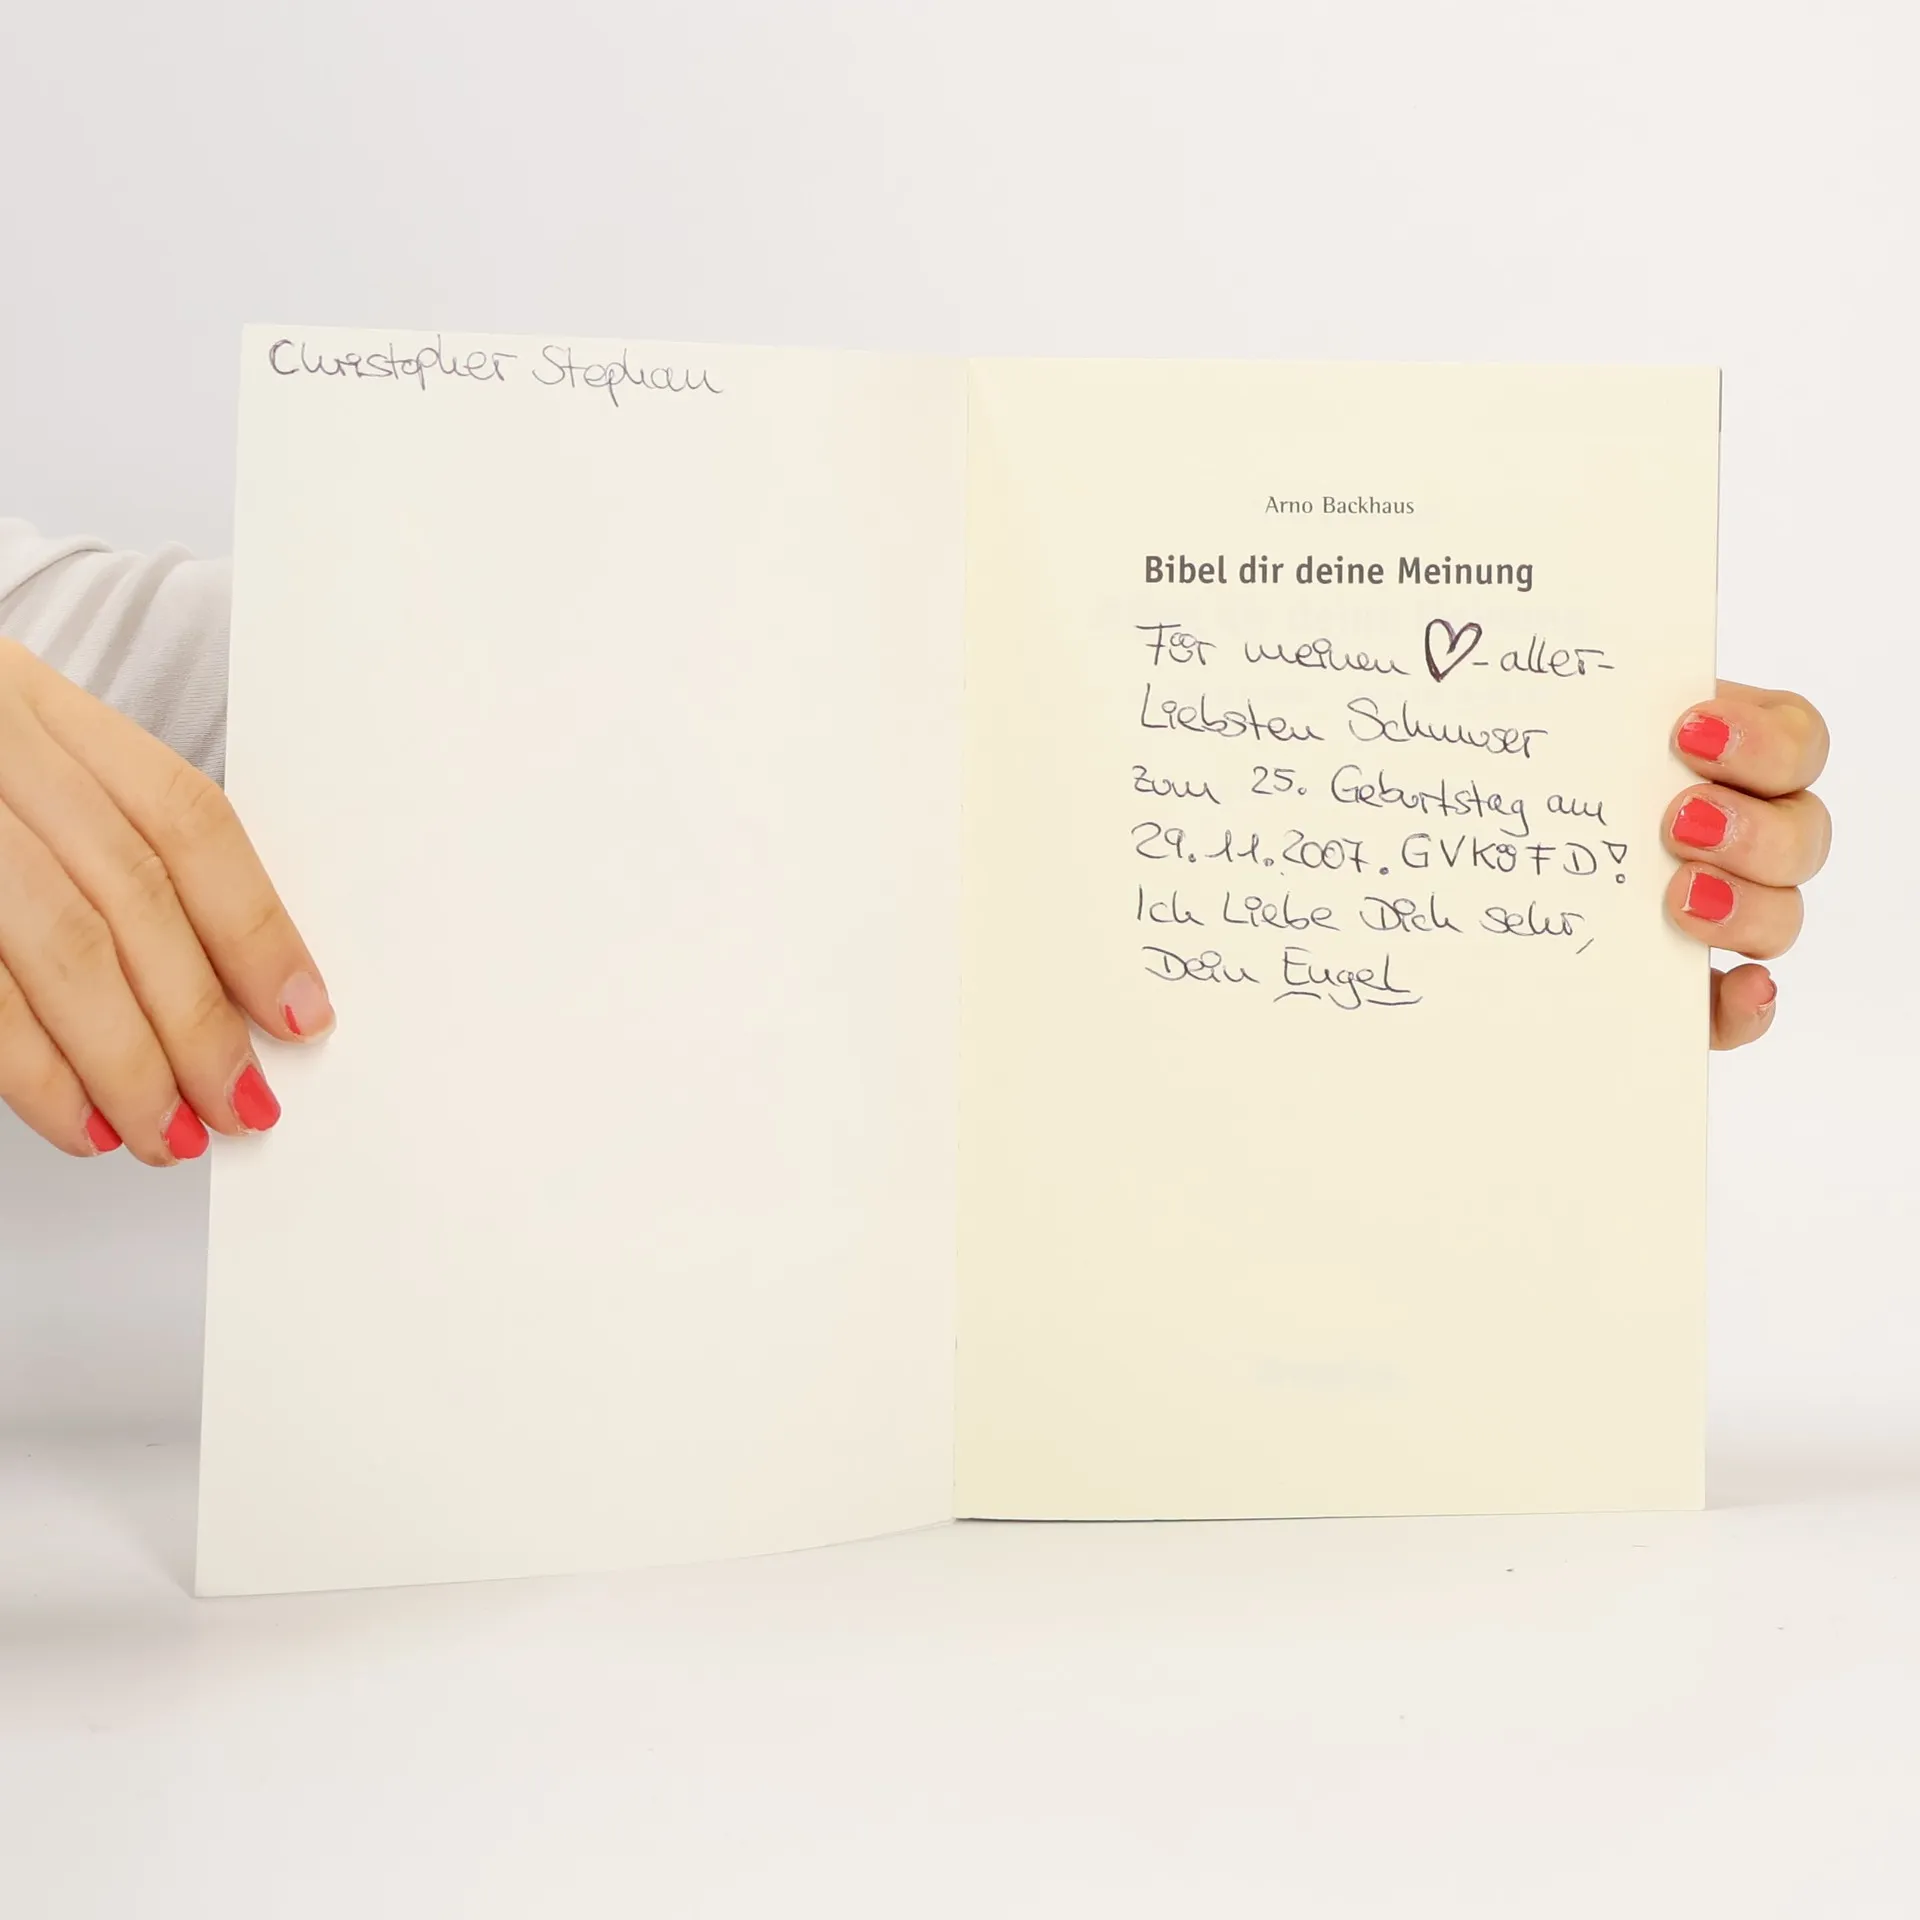 Christopher Stephan
Arno Backhaus
Bibel dir deine Meinung
Für meinen ♡-aller-
Liebsten Schmuser
zum 25. Geburtstag am
29.11.2007. GVKüFD!
Ich Liebe Dich sehr,
Dein Engel